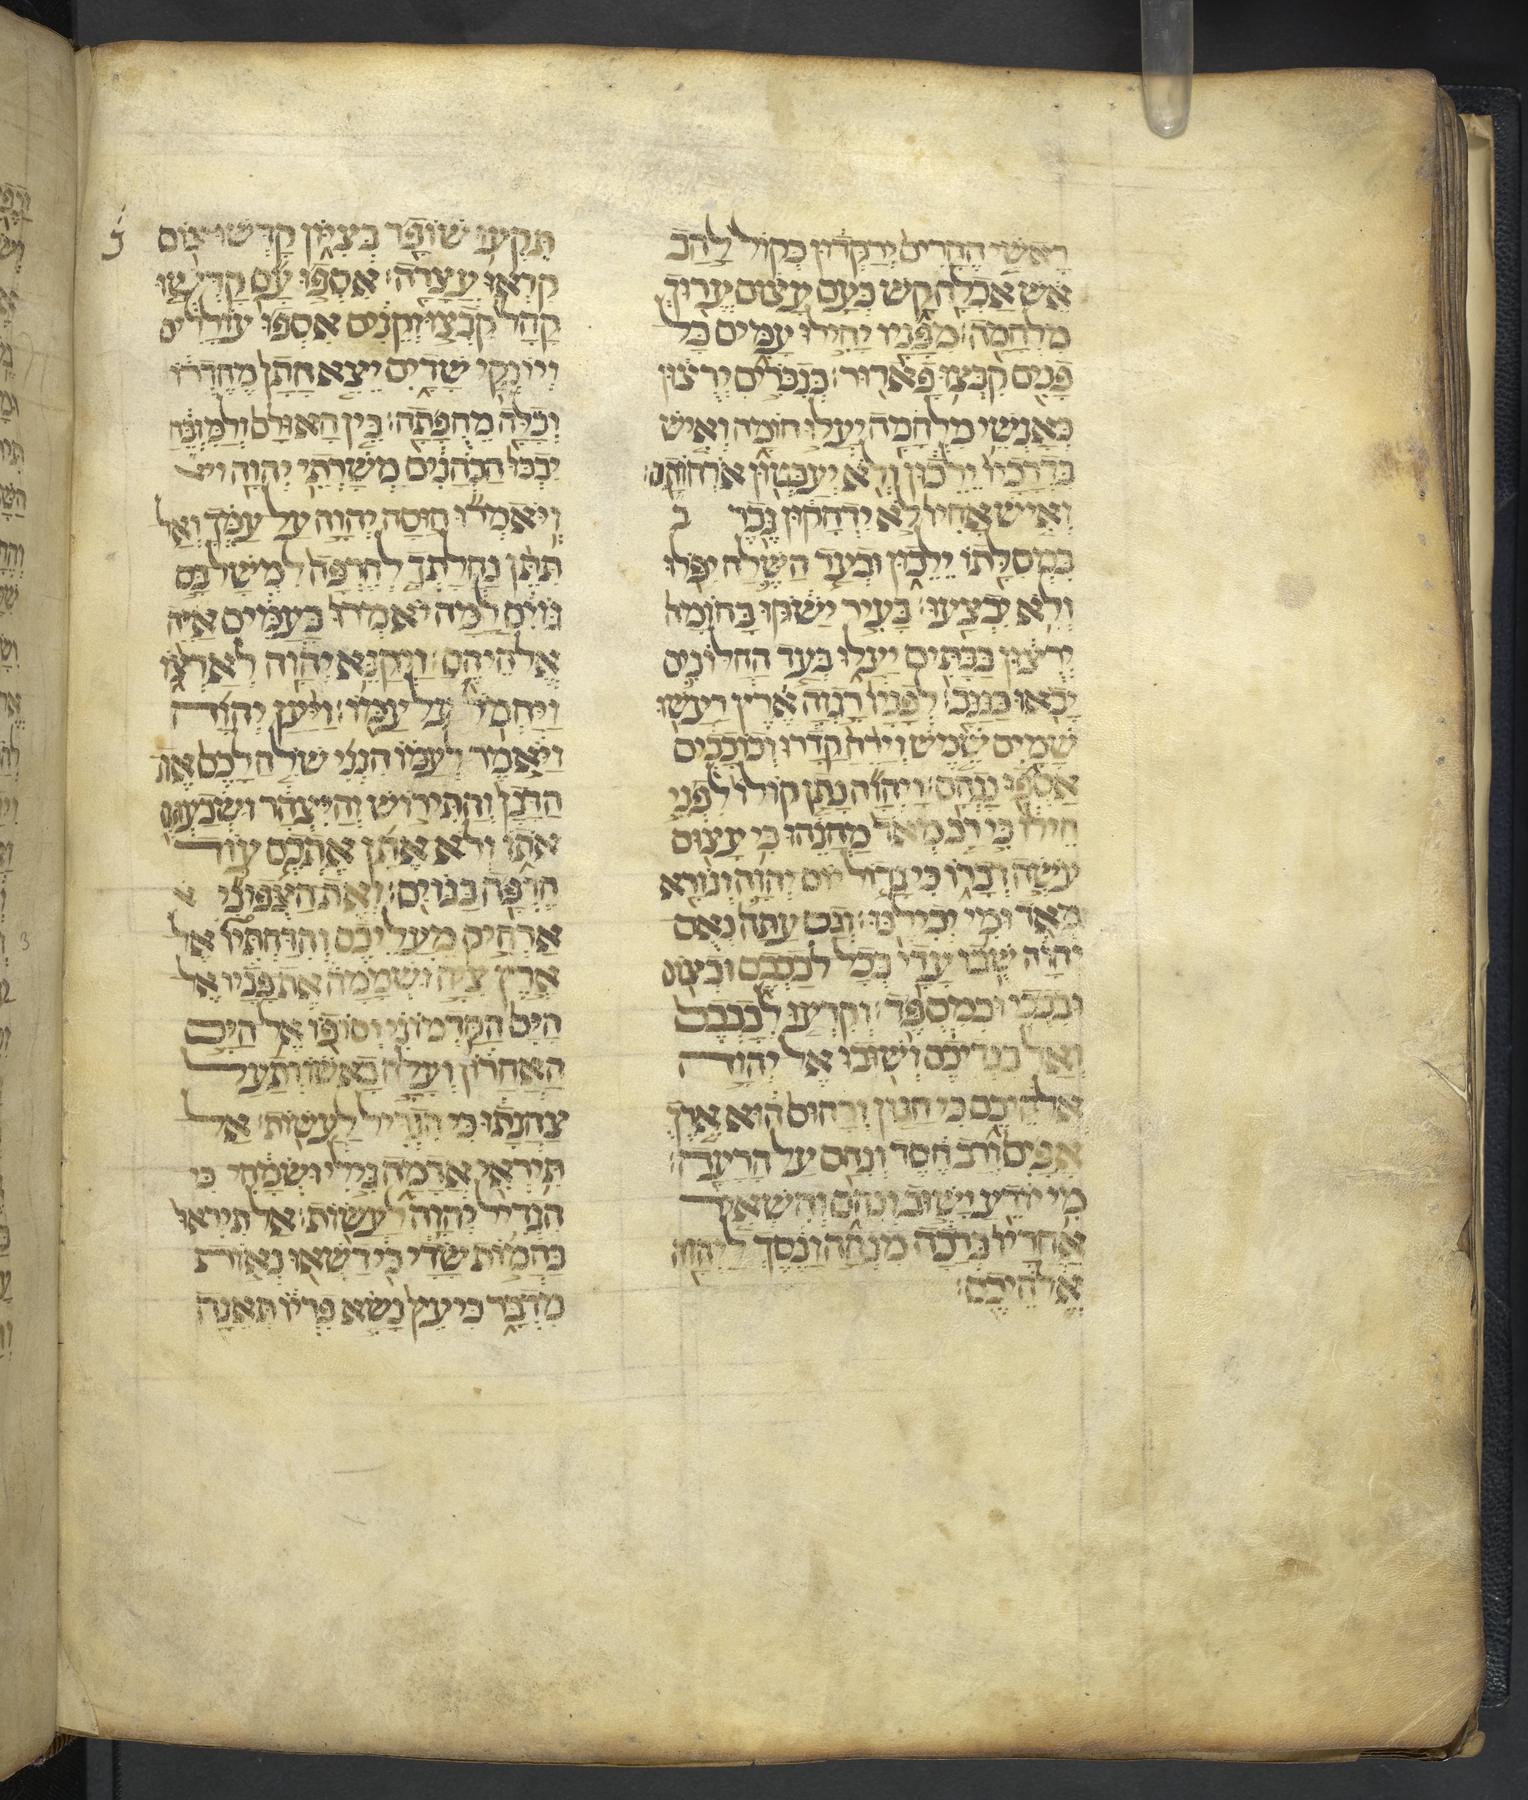 רָאשֵׁי הֶהָרִים יְרַקֵּדוּן כְּקוֹל לַהַב
אֵשׁ אֹכְלָה קָשׁ כְּעַם עָצוּם עֱרוּךְ
מִלְחָמָה׃ מִפָּנָיו יָחִילוּ עַמִּים כָּל
פָּנִים קִבְּצוּ פָארוּר׃ כְּגִבֹּרִים יְרֻצוּן
כְּאַנְשֵׁי מִלְחָמָה יַעֲלוּ חוֹמָה וְאִישׁ
בִּדְרָכָיו יֵלֵכוּן וְלֹא יְעַבְּטוּן אֹרְחוֹתָם׃
וְאִישׁ אָחִיו לֹא יִדְחָקוּן גֶּבֶר ב
בִּמְסִלָּתוֹ יֵלֵכוּן וּבְעַד הַשֶּׁלַח יִפֹּלוּ
וְלֹא יִבְצָעוּ׃ בָּעִיר יָשֹׁקּוּ בַּחוֹמָה
יְרֻצוּן בַּבָּתִּים יַעֲלוּ בְּעַד הַחַלּוֹנִים
יָבֹאוּ כַּגַּנָּב׃ לְפָנָיו רָגְזָה אֶרֶץ רָעֲשׁוּ
שָׁמָיִם שֶׁמֶשׁ וְיָרֵחַ קָדָרוּ וְכוֹכָבִים
אָסְפוּ נָגְהָם׃ וַיהוָה נָתַן קוֹלוֹ לִפְנֵי
חֵילוֹ כִּי רַב מְאֹד מַחֲנֵהוּ כִּי עָצוּם
עֹשֵׂה דְבָרוֹ כִּי גָדוֹל יוֹם יְהוָה וְנוֹרָא
מְאֹד וּמִי יְכִילֶנּוּ׃ וְגַם עַתָּה נְאֻם
יְהוָה שֻׁבוּ עָדַי בְּכָל לְבַבְכֶם וּבְצוֹם
וּבִבְכִי וּבְמִסְפֵּד׃ וְקִרְעוּ לְבַבְכֶם
וְאַל בִּגְדֵיכֶם וְשׁוּבוּ אֶל יְהוָה
אֱלֹהֵיכֶם כִּי חַנּוּן וְרַחוּם הוּא אֶרֶךְ
אַפַּיִם וְרַב חֶסֶד וְנִחָם עַל הָרָעָה׃
מִי יוֹדֵעַ יָשׁוּב וְנִחָם וְהִשְׁאִיר
אַחֲרָיו בְּרָכָה מִנְחָה וָנֶסֶךְ לַיהוָה
אֱלֹהֵיכֶם׃
תִּקְעוּ שׁוֹפָר בְּצִיּוֹן קַדְּשׁוּ צוֹם
קִרְאוּ עֲצָרָה׃ אִסְפוּ עָם קַדְּשׁוּ
קָהָל קִבְצוּ זְקֵנִים אִסְפוּ עוֹלָלִים
וְיוֹנְקֵי שָׁדָיִם יֵצֵא חָתָן מֵחֶדְרוֹ
וְכַלָּה מֵחֻפָּתָהּ׃ בֵּין הָאוּלָם וְלַמִּזְבֵּחַ
יִבְכּוּ הַכֹּהֲנִים מְשָׁרְתֵי יְהוָה וי
וְיֹאמְרוּ חוּסָה יְהוָה עַל עַמֶּךָ וְאַל
תִּתֵּן נַחֲלָתְךָ לְחֶרְפָּה לִמְשָׁל בָּם
גּוֹיִם לָמָּה יֹאמְרוּ בָעַמִּים אַיֵּה
אֱלֹהֵיהֶם׃ וַיְקַנֵּא יְהוָה לְאַרְצוֹ
וַיַּחְמֹל עַל עַמּוֹ׃ וַיַּעַן יְהוָה
וַיֹּאמֶר לְעַמּוֹ הִנְנִי שֹׁלֵחַ לָכֶם אֶת
הַדָּגָן וְהַתִּירוֹשׁ וְהַיִּצְהָר וּשְׂבַעְתֶּם
אֹתוֹ וְלֹא אֶתֵּן אֶתְכֶם עוֹד
חֶרְפָּה בַּגּוֹיִם׃ וְאֶת הַצְּפוֹנִי א
אַרְחִיק מֵעֲלֵיכֶם וְהִדַּחְתִּיו אֶל
אֶרֶץ צִיָּה וּשְׁמָמָה אֶת פָּנָיו אֶל
הַיָּם הַקַּדְמוֹנִי וְסוֹפוֹ אֶל הַיָּם
הָאַחֲרוֹן וְעָלָה בָאְשׁוֹ וְתַעַל
צַחֲנָתוֹ כִּי הִגְדִּיל לַעֲשׂוֹת׃ אַל
תִּירְאִי אֲדָמָה גִּילִי וּשְׂמָחִי כִּי
הִגְדִּיל יְהוָה לַעֲשׂוֹת׃ אַל תִּירְאוּ
בַּהֲמוֹת שָׂדַי כִּי דָשְׁאוּ נְאוֹת
מִדְבָּר כִּי עֵץ נָשָׂא פִרְיוֹ תְּאֵנָה